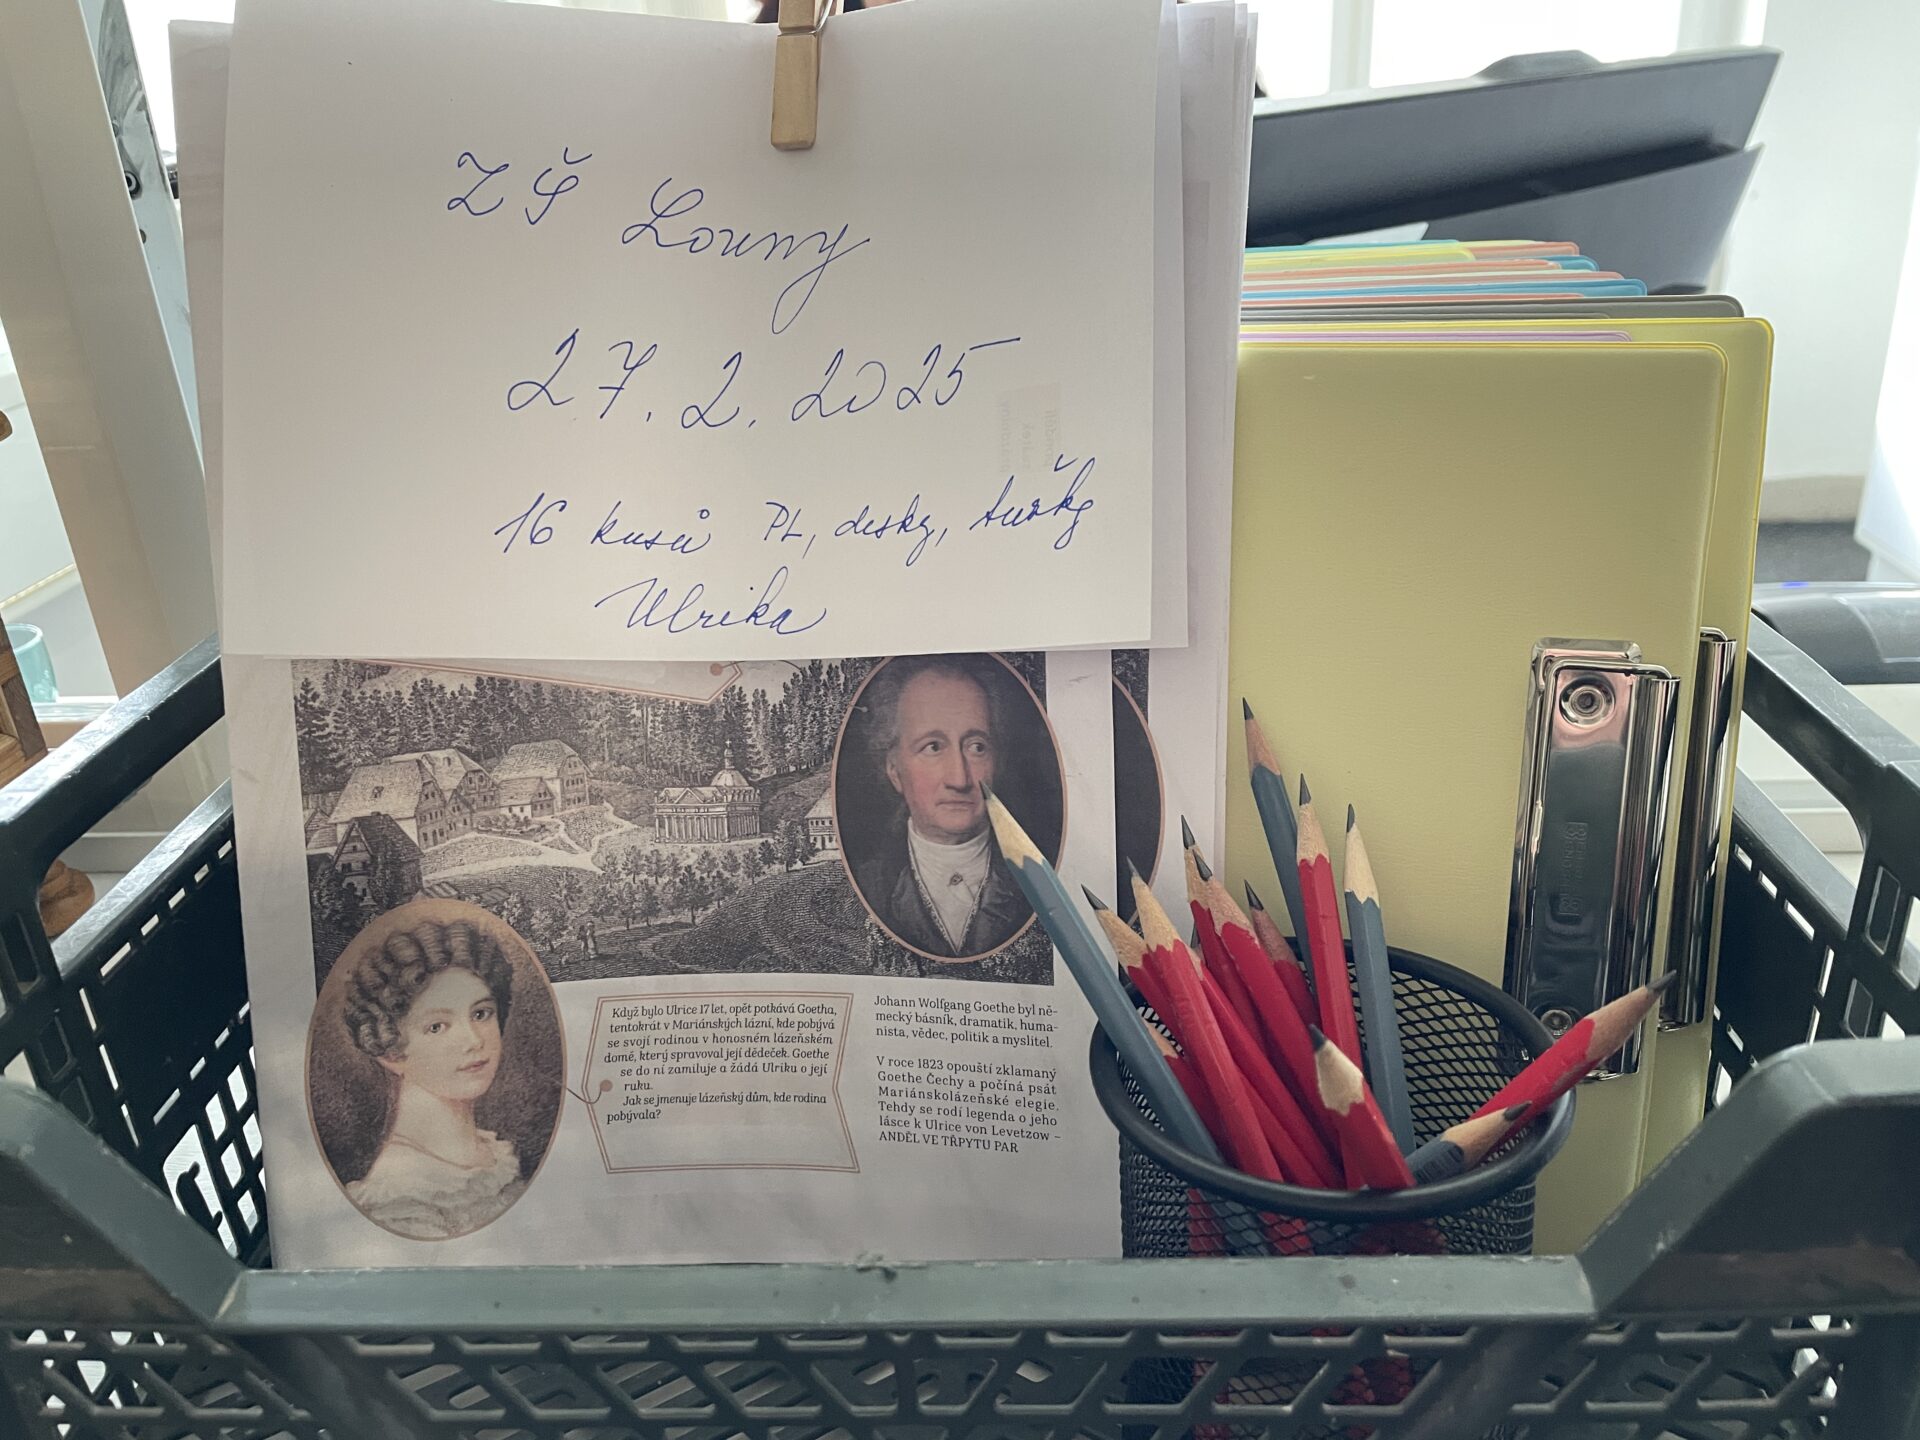 ZŠ Louny
27. 2. 2025
16 kusů PL, desky, tužky
Ulrika
Když bylo Ulrice 17 let, opět potkává Goetha,
tentokrát v Mariánských lázní, kde pobývá
se svojí rodinou v honosném lázeňském
domě, který spravoval její dědeček. Goethe
se do ní zamiluje a žádá Ulriku o její
ruku.
Jak se jmenuje lázeňský dům, kde rodina
pobývala?
Johann Wolfgang Goethe byl ně-
mecký básník, dramatik, huma-
nista, vědec, politik a myslitel.
V roce 1823 opouští zklamaný
Goethe Čechy a počíná psát
Mariánskolázeňské elegie.
Tehdy se rodí legenda o jeho
lásce k Ulrice von Levetzow –
ANDĚL VE TŘPYTU PAR